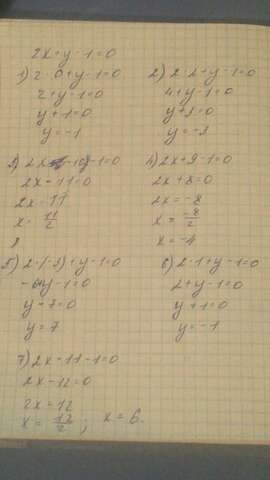 2x+y-1=0
1) 2·0+y-1=0
2+y-1=0
y+1=0
y=-1
2) 2·2+y-1=0
4+y-1=0
y+3=0
y=-3
2x-10-1=0
2x-11=0
2x=11
x=11/2
4) 2x+9-1=0
2x+8=0
2x=-8
x=-8/2
x=-4
5) 2·(-3)+y-1=0
-6+y-1=0
y-7=0
y=7
6) 2·1+y-1=0
2+y-1=0
y+1=0
y=-1
7) 2x-11-1=0
2x-12=0
2x=12
x=12/2; x=6.